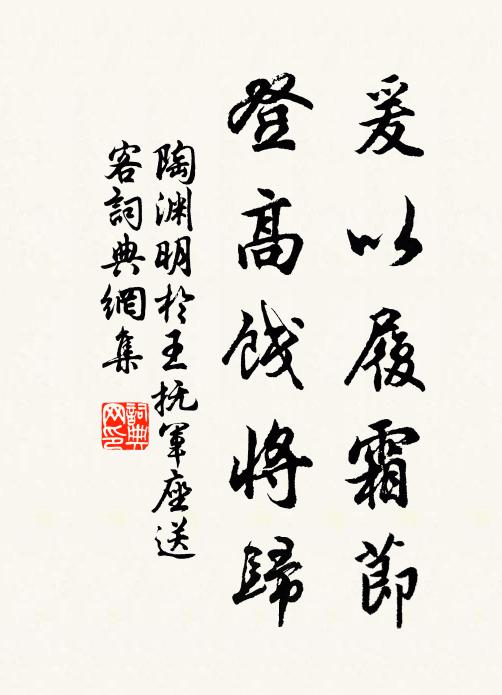 爰以履霜節
登高餞將歸
陶渊明於王抚軍座送
客詞典網集
詞典
网印